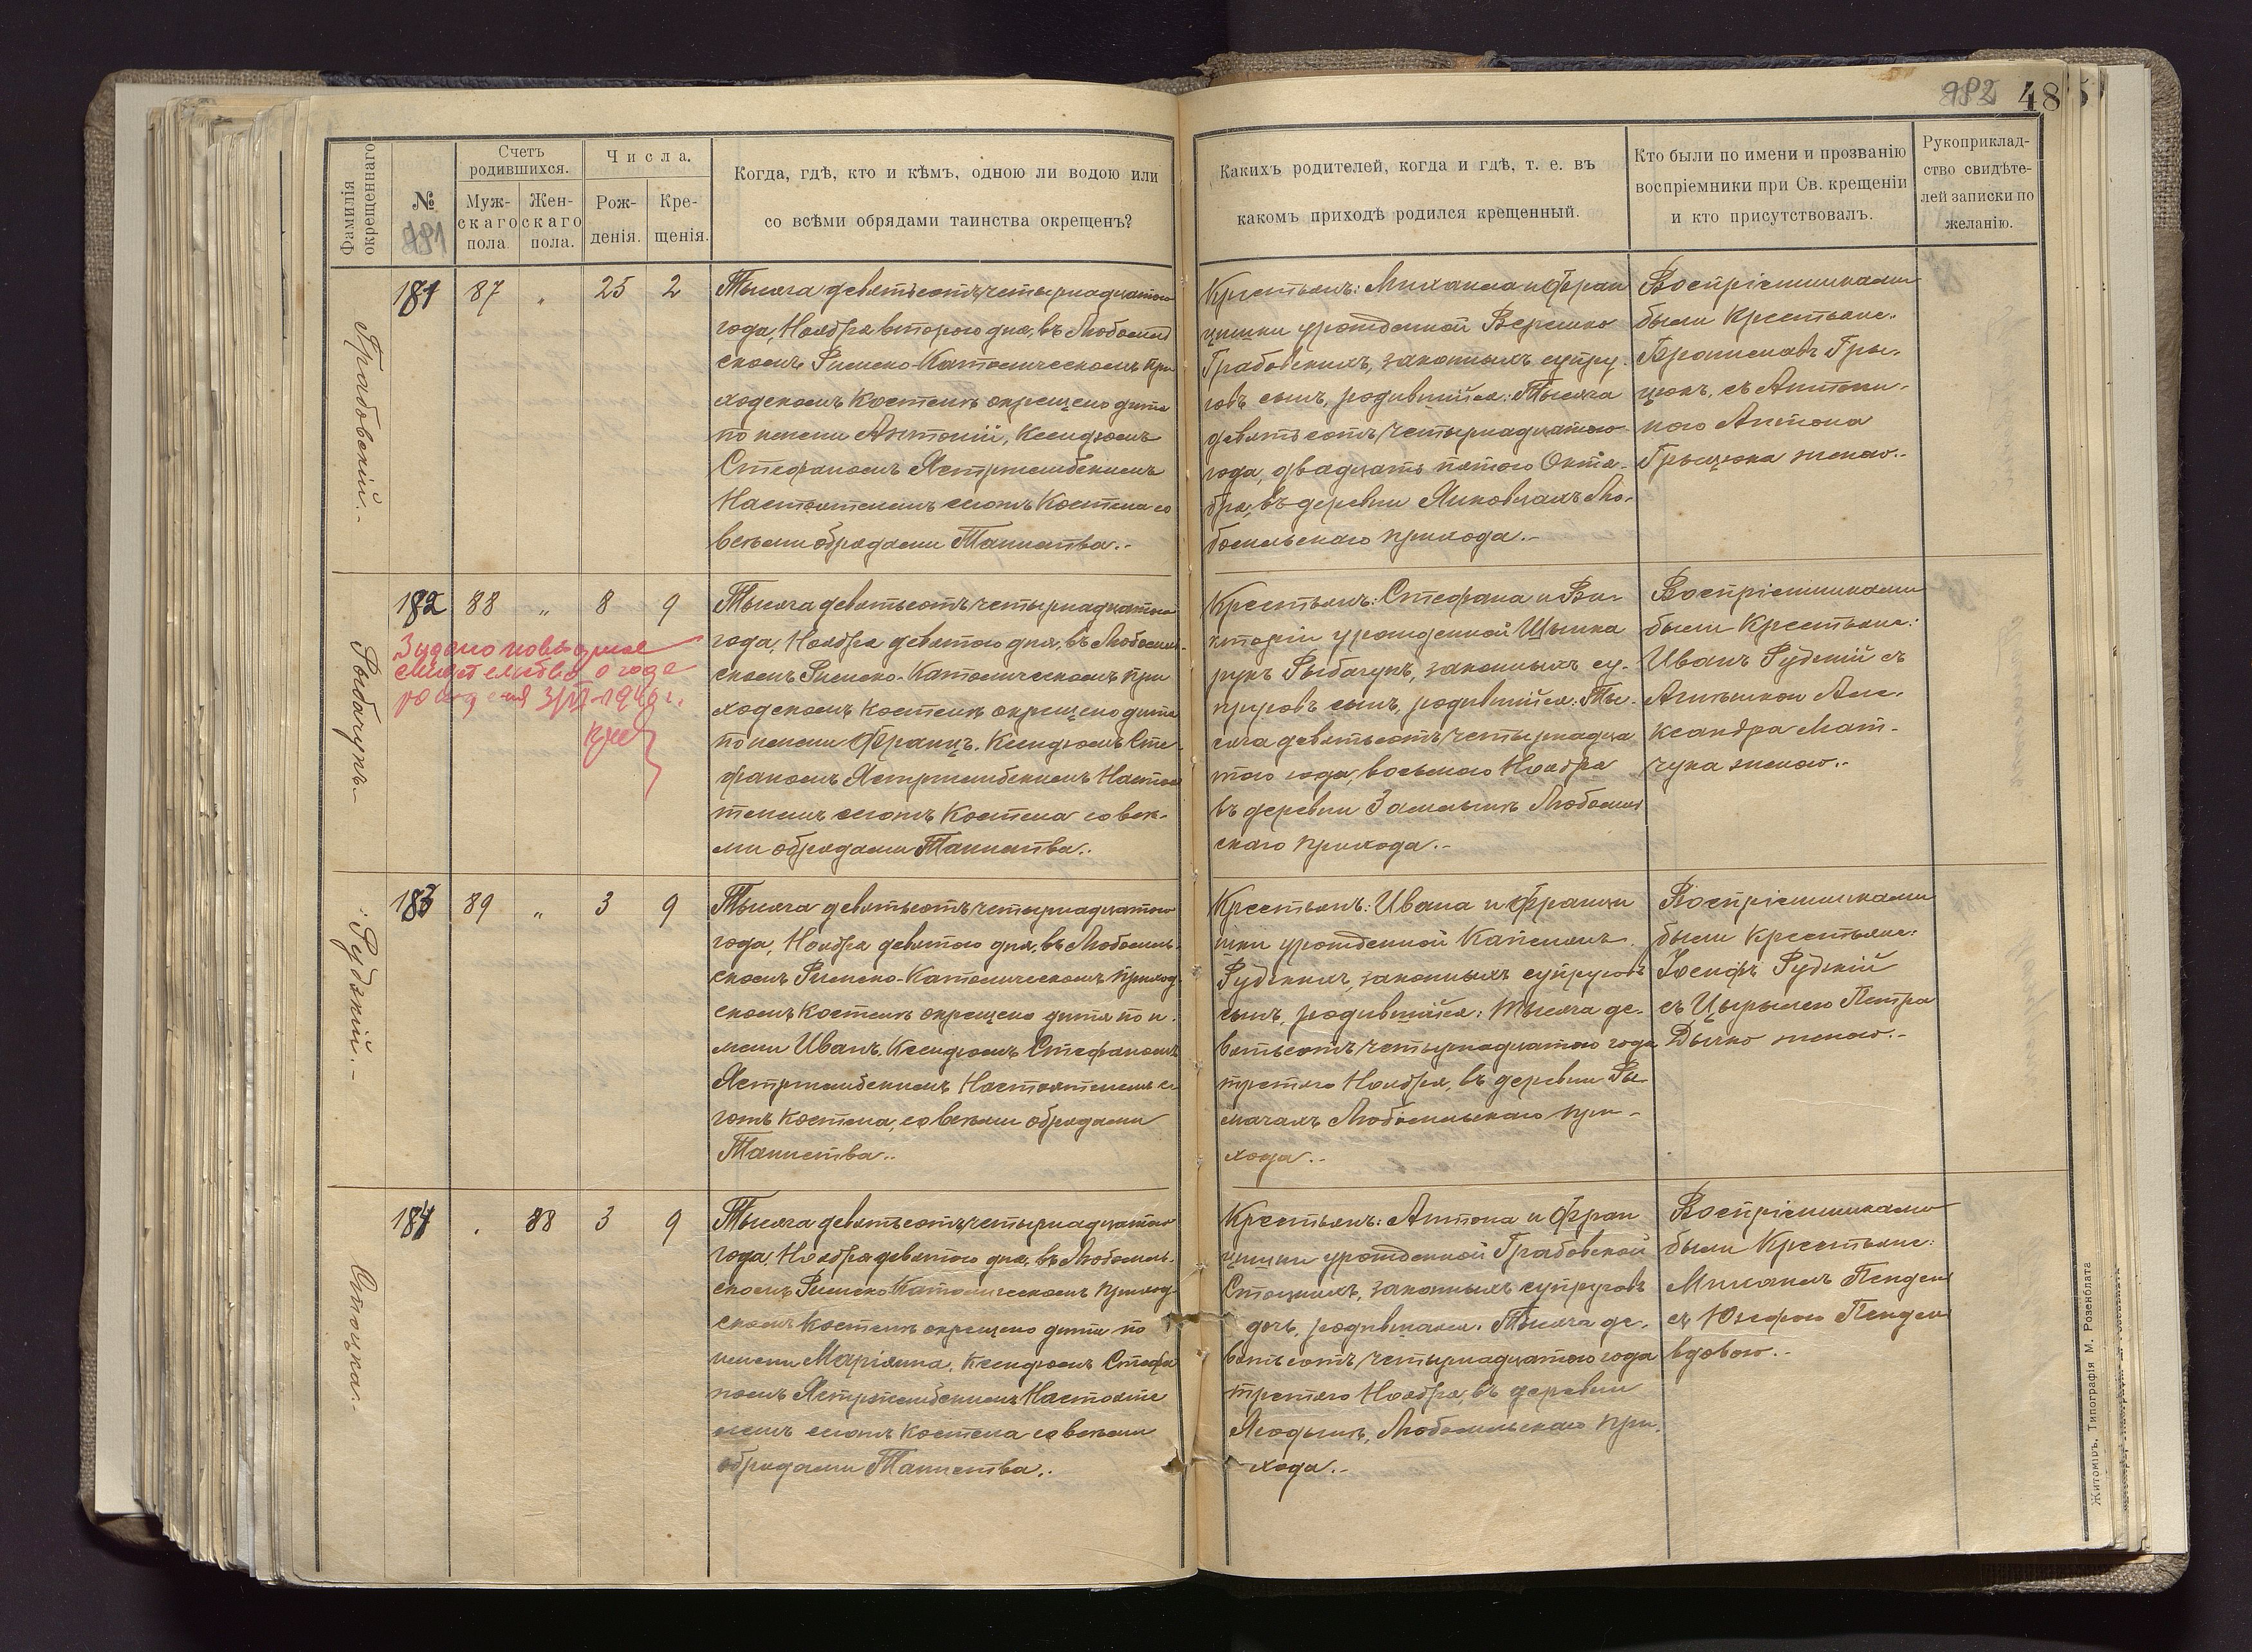 982 48
Фамилія окрещеннаго
№
Счетъ родившихся.
Мужскаго пола
Женскаго пола.
Числа.
Рожденія.
Крещенія.
Когда, гдѣ, кто и кѣмъ, одною ли водою или
со всѣми обрядами таинства окрещенъ?
Какихъ родителей, когда и гдѣ, т. е. въ
какомъ приходѣ родился крещенный.
Кто были по имени и прозванію
воспріемники при Св. крещеніи
и кто присутствовалъ.
Рукоприклад-
ство свидѣте-
лей записки по
желанію.
Грабовскій.-
181 87 " 25 2
Тысяча девятьсотъ четырнадцатого
года, Ноября второго дня, въ Любомль
скомъ Римско-Католическомъ при
ходскомъ Костелѣ окрещено дитя
по имени Антоній, Ксендзомъ
Стефаномъ Ястржембскимъ
Настоятелемъ сегожъ Костела со
всѣми обрядами Таинства.-
Крестьянъ: Михаила и Фран
цишки урожденной Верешко
Грабовскихъ, законныхъ супру-
говъ сынъ, родившійся: Тысяча
девятьсотъ четырнадцатого
года, двадцать пятого Октя-
бря, въ деревни Янковцахъ Лю-
бомльскаго прихода.-
Воспріемниками
были Крестьяне.
Брониславъ Гры-
цюкъ, съ Антони-
ною Антона
Грыцюка женою.-
Рыбачукъ.-
182 88 " 8 9
Тысяча девятьсотъ четырнадцатого
года, Ноября девятого дня, въ Любомль-
скомъ Римско-Католическомъ при
ходскомъ Костелѣ окрещено дитя
по имени Францъ. Ксендзомъ Сте-
фаномъ Ястржембскимъ Настоя
телемъ сегожъ Костела со всѣ-
ми обрядами Таинства.-
Крестьянъ: Стефана и Ви-
кторіи урожденной
Рыбачукъ, законныхъ су-
пруговъ сынъ, родившійся: Ты-
сяча девятьсотъ четырнадца
того года, восьмого Ноября
въ деревни Замлынѣ Любомль
скаго прихода.-
Воспріемниками
были Крестьяне:
Иванъ Рудскій съ
Агнѣшкою Але-
ксандра Мат-
чука женою.-
Рудзкій.-
183 89 " 3 9
Тысяча девятьсотъ четырнадцатого
года, Ноября девятого дня, въ Любомль-
скомъ Римско-Католическомъ приход-
скомъ Костелѣ окрещено дитя по и-
мени Иванъ. Ксендзомъ Стефаномъ
Ястржембскимъ Настоятелемъ се
гожъ Костела, со всѣми обрядами
Таинства.-
Крестьянъ: Ивана и Францы
шки урожденной
Рудзкихъ, законныхъ супруговъ
сынъ, родившійся: Тысяча де-
вятьсотъ четырнадцатого года
третяго Ноября, въ деревни Ры-
мачахъ Любомльскаго при-
хода.-
Воспріемниками
были Крестьяне:
Іосифъ Рудзкій
съ Цырылею Петра
Дычко женою.-
Стоцка.-
184 . 88 3 9
Тысяча девятьсотъ четырнадцатого
года, Ноября девятого дня, въ Любомль-
скомъ Римско-Католическомъ приход-
скомъ Костелѣ окрещено дитя по
имени Маріянна. Ксендзомъ Стефа
номъ Ястржембскимъ Настояте
лемъ сегожъ Костела со всѣми
обрядами Таинства.-
Крестьянъ: Антона и Фран
цишки урожденной Грабовской
Стоцкихъ, законныхъ супруговъ
дочь, родившаяся. Тысяча де-
вятьсотъ четырнадцатого года
третяго Ноября, въ деревни
Ягодынѣ, Любомльскаго при-
хода.-
Воспріемниками
были Крестьяне:
Михаилъ Пендель
съ Юзефою Пендель
вдовою.-
Житоміръ, Типографія М. Розенблата